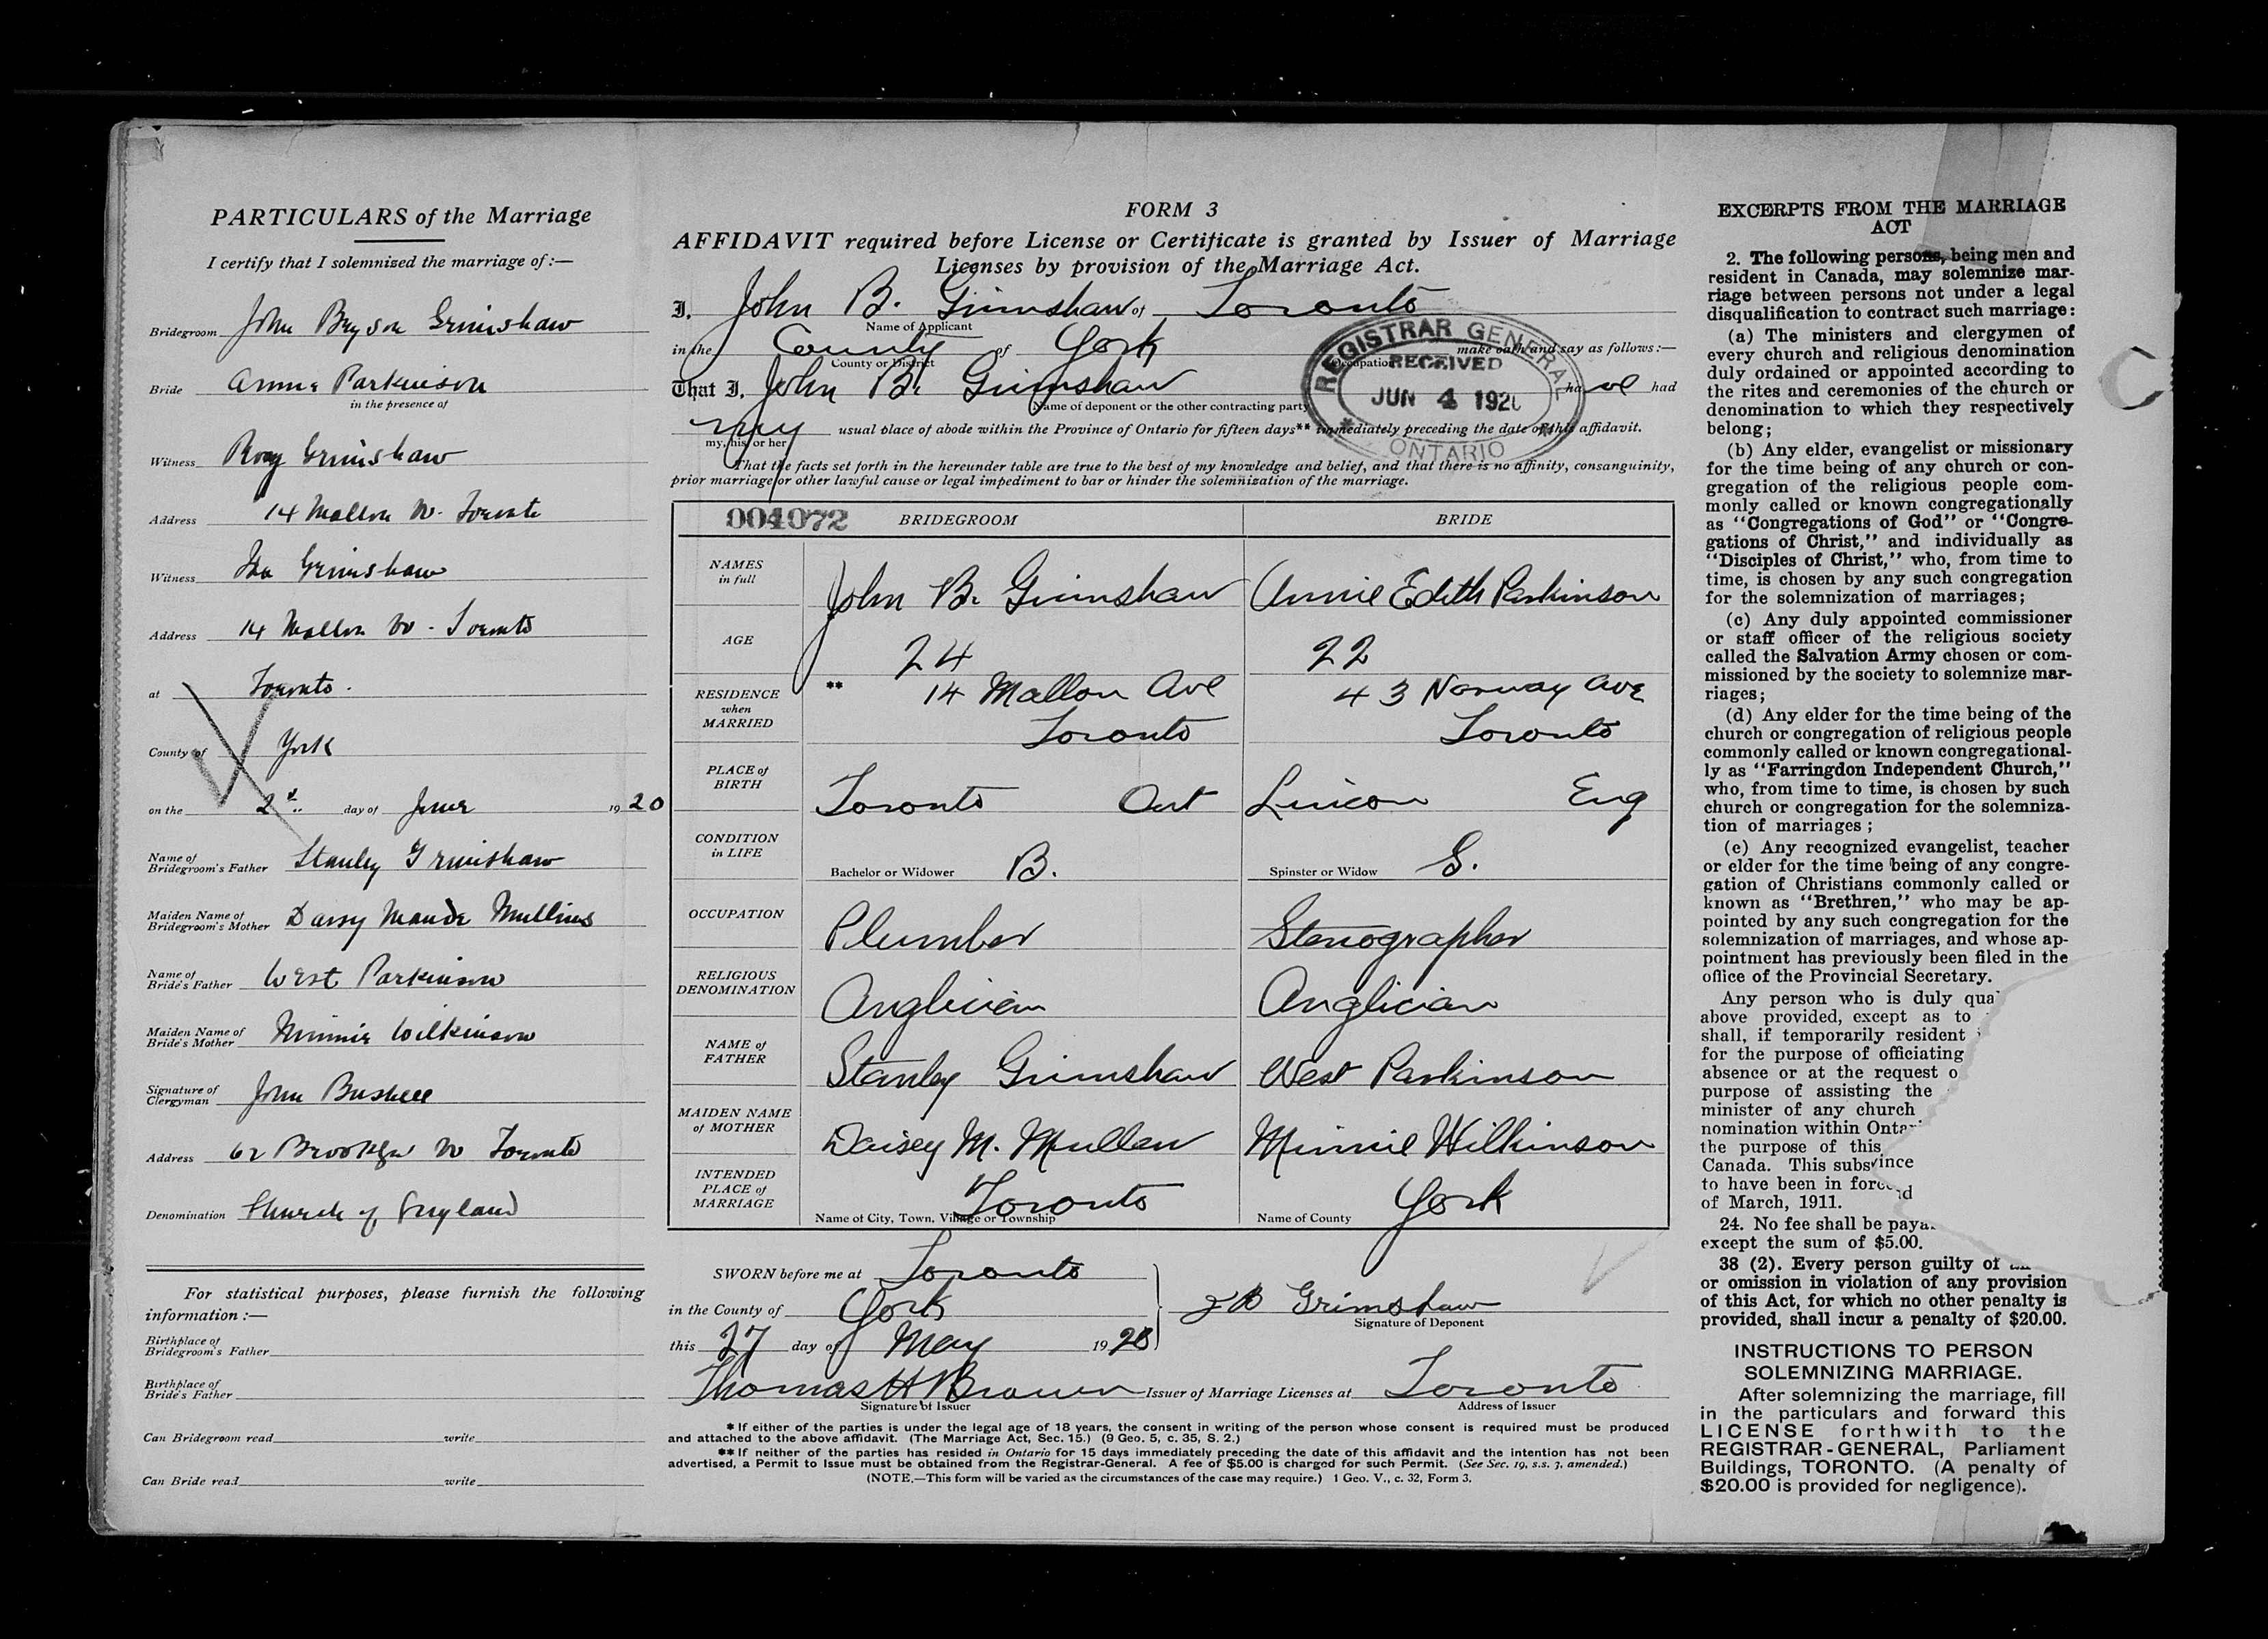 PARTICULARS of the Marriage
I certify that I solemnized the marriage of:—
Bridegroom John Bryson Grimshaw
Bride Annie Parkinson
in the presence of
Witness Roy Grimshaw
Address 14 Mallon Av. Toronto
Witness Ida Grimshaw
Address 14 Mallon Av - Toronto
at Toronto.
County of York
on the 2nd day of June 1920
Name of
Bridegroom's Father Stanley Grimshaw
Maiden Name of
Bridegroom's Mother Daisy Maude Mullins
Name of
Bride's Father West Parkinson
Maiden Name of
Bride's Mother Minnie Wilkinson
Signature of
Clergyman John Bushell
Address 62 Brooklyn Av Toronto
Denomination Church of England
For statistical purposes, please furnish the following
information :—
Birthplace of
Bridegroom's Father
Birthplace of
Bride's Father
Can Bridegroom read write
Can Bride read write
FORM 3
AFFIDAVIT required before License or Certificate is granted by Issuer of Marriage
Licenses by provision of the Marriage Act.
I, John B. Grimshaw of Toronto
Name of Applicant
in the County of York make oath and say as follows:—
County or District Occupation
That I, John B. Grimshaw ha ve had
Name of deponent or the other contracting party
my usual place of abode within the Province of Ontario for fifteen days** immediately preceding the date of this affidavit.
my, his, or her
REGISTRAR GENERAL
RECEIVED
JUN 4 1920
ONTARIO
That the facts set forth in the hereunder table are true to the best of my knowledge and belief, and that there is no affinity, consanguinity,
prior marriage or other lawful cause or legal impediment to bar or hinder the solemnization of the marriage.
004072 BRIDEGROOM BRIDE
NAMES
in full John B. Grimshaw Annie Edith Parkinson
AGE 24 22
RESIDENCE ** 14 Mallon Ave 43 Norway Ave
when
MARRIED Toronto Toronto
PLACE of
BIRTH Toronto Ont Lincon Eng
CONDITION
in LIFE Bachelor or Widower B. Spinster or Widow S.
OCCUPATION Plumber Stenographer
RELIGIOUS
DENOMINATION Anglician Anglician
NAME of
FATHER Stanley Grimshaw West Parkinson
MAIDEN NAME
of MOTHER Daisey M. Mullen Minnie Wilkinson
INTENDED
PLACE of
MARRIAGE Toronto York
Name of City, Town, Village or Township Name of County
SWORN before me at Toronto
in the County of York J B Grimshaw
Signature of Deponent
this 27 day of May 1920
Thomas H Brown Issuer of Marriage Licenses at Toronto
Signature of Issuer Address of Issuer
* If either of the parties is under the legal age of 18 years, the consent in writing of the person whose consent is required must be produced
and attached to the above affidavit. (The Marriage Act, Sec. 15.) (9 Geo. 5, c. 35, S. 2.)
** If neither of the parties has resided in Ontario for 15 days immediately preceding the date of this affidavit and the intention has not been
advertised, a Permit to Issue must be obtained from the Registrar-General. A fee of $5.00 is charged for such Permit. (See Sec. 19, s.s. 3, amended.)
(NOTE.—This form will be varied as the circumstances of the case may require.) 1 Geo. V., c. 32, Form 3.
EXCERPTS FROM THE MARRIAGE
ACT
2. The following persons, being men and
resident in Canada, may solemnize mar-
riage between persons not under a legal
disqualification to contract such marriage:
(a) The ministers and clergymen of
every church and religious denomination
duly ordained or appointed according to
the rites and ceremonies of the church or
denomination to which they respectively
belong;
(b) Any elder, evangelist or missionary
for the time being of any church or con-
gregation of the religious people com-
monly called or known congregationally
as "Congregations of God" or "Congre-
gations of Christ," and individually as
"Disciples of Christ," who, from time to
time, is chosen by any such congregation
for the solemnization of marriages;
(c) Any duly appointed commissioner
or staff officer of the religious society
called the Salvation Army chosen or com-
missioned by the society to solemnize mar-
riages;
(d) Any elder for the time being of the
church or congregation of religious people
commonly called or known congregational-
ly as "Farringdon Independent Church,"
who, from time to time, is chosen by such
church or congregation for the solemniza-
tion of marriages;
(e) Any recognized evangelist, teacher
or elder for the time being of any congre-
gation of Christians commonly called or
known as "Brethren," who may be ap-
pointed by any such congregation for the
solemnization of marriages, and whose ap-
pointment has previously been filed in the
office of the Provincial Secretary.
Any person who is duly qua
above provided, except as to
shall, if temporarily resident
for the purpose of officiating
absence or at the request o
purpose of assisting the
minister of any church
nomination within Onta
the purpose of this
Canada. This subs ince
to have been in force
of March, 1911.
24. No fee shall be paya
except the sum of $5.00.
38 (2). Every person guilty of
or omission in violation of any provision
of this Act, for which no other penalty is
provided, shall incur a penalty of $20.00.
INSTRUCTIONS TO PERSON
SOLEMNIZING MARRIAGE.
After solemnizing the marriage, fill
in the particulars and forward this
LICENSE forthwith to the
REGISTRAR-GENERAL, Parliament
Buildings, TORONTO. (A penalty of
$20.00 is provided for negligence).